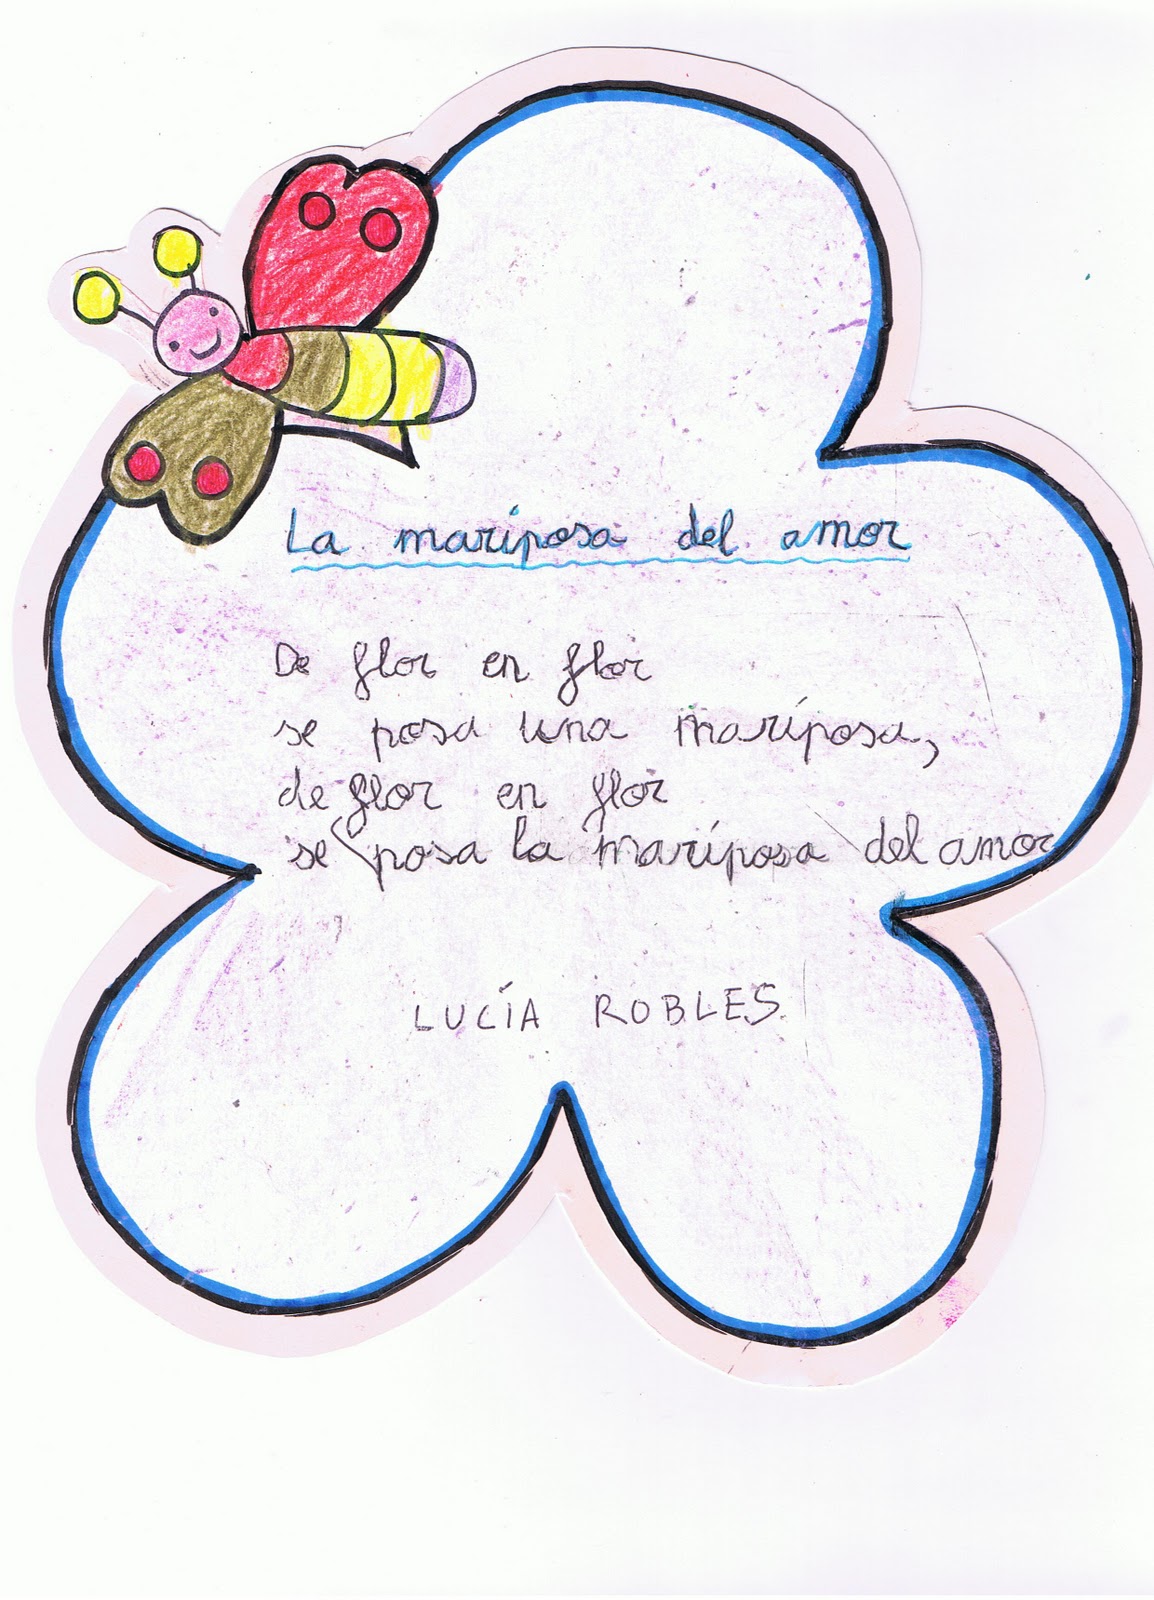 La mariposa del amor
De flor en flor
se posa una mariposa,
de flor en flor
se posa la mariposa del amor
LUCÍA ROBLES